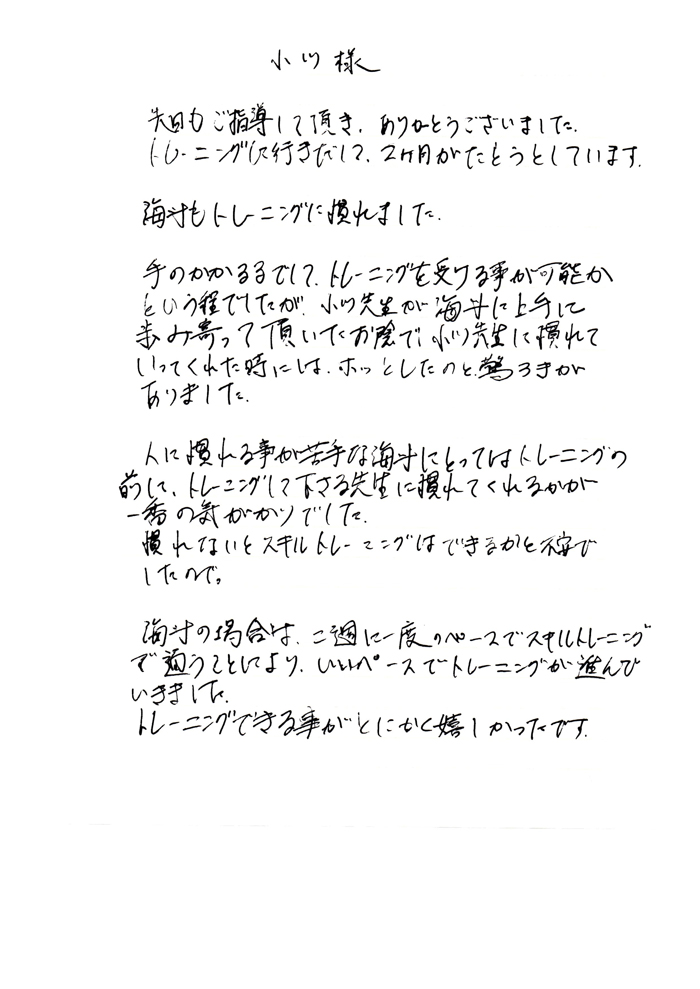 小川様
先日もご指導して頂き、ありがとうございました。
トレーニングに行きだして、2ヶ月がたとうとしています。
海斗もトレーニングに慣れました。
手のかかる子でして、トレーニングを受ける事が可能か
という程でしたが、小川先生が海斗に上手に
歩み寄って頂いたお陰で、小川先生に慣れて
いってくれた時には、ホッとしたのと、驚ろきが
ありました。
人に慣れる事が苦手な海斗にとってはトレーニングの
前に、トレーニングして下さる先生に慣れてくれるかが
一番の気がかりでした。
慣れないとスキルトレーニングはできるかと不安で
したので。
海斗の場合は、二週に一度のペースでスキルトレーニング
で通うことにより、いいペースでトレーニングが進んで
いきました。
トレーニングできる事がとにかく嬉しかったです。